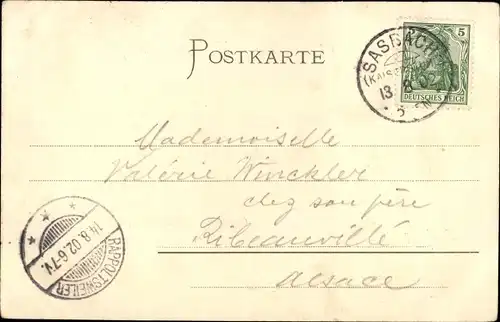 POSTKARTE
SASBACH
(KAISERST
13 8 02
5
DEUTSCHES REICH
Mademoiselle
Valérie Winckler
chez son père
Ribeauvillé
Alsace
14.8.02.6-7N.
RAPPOLTSWEILER